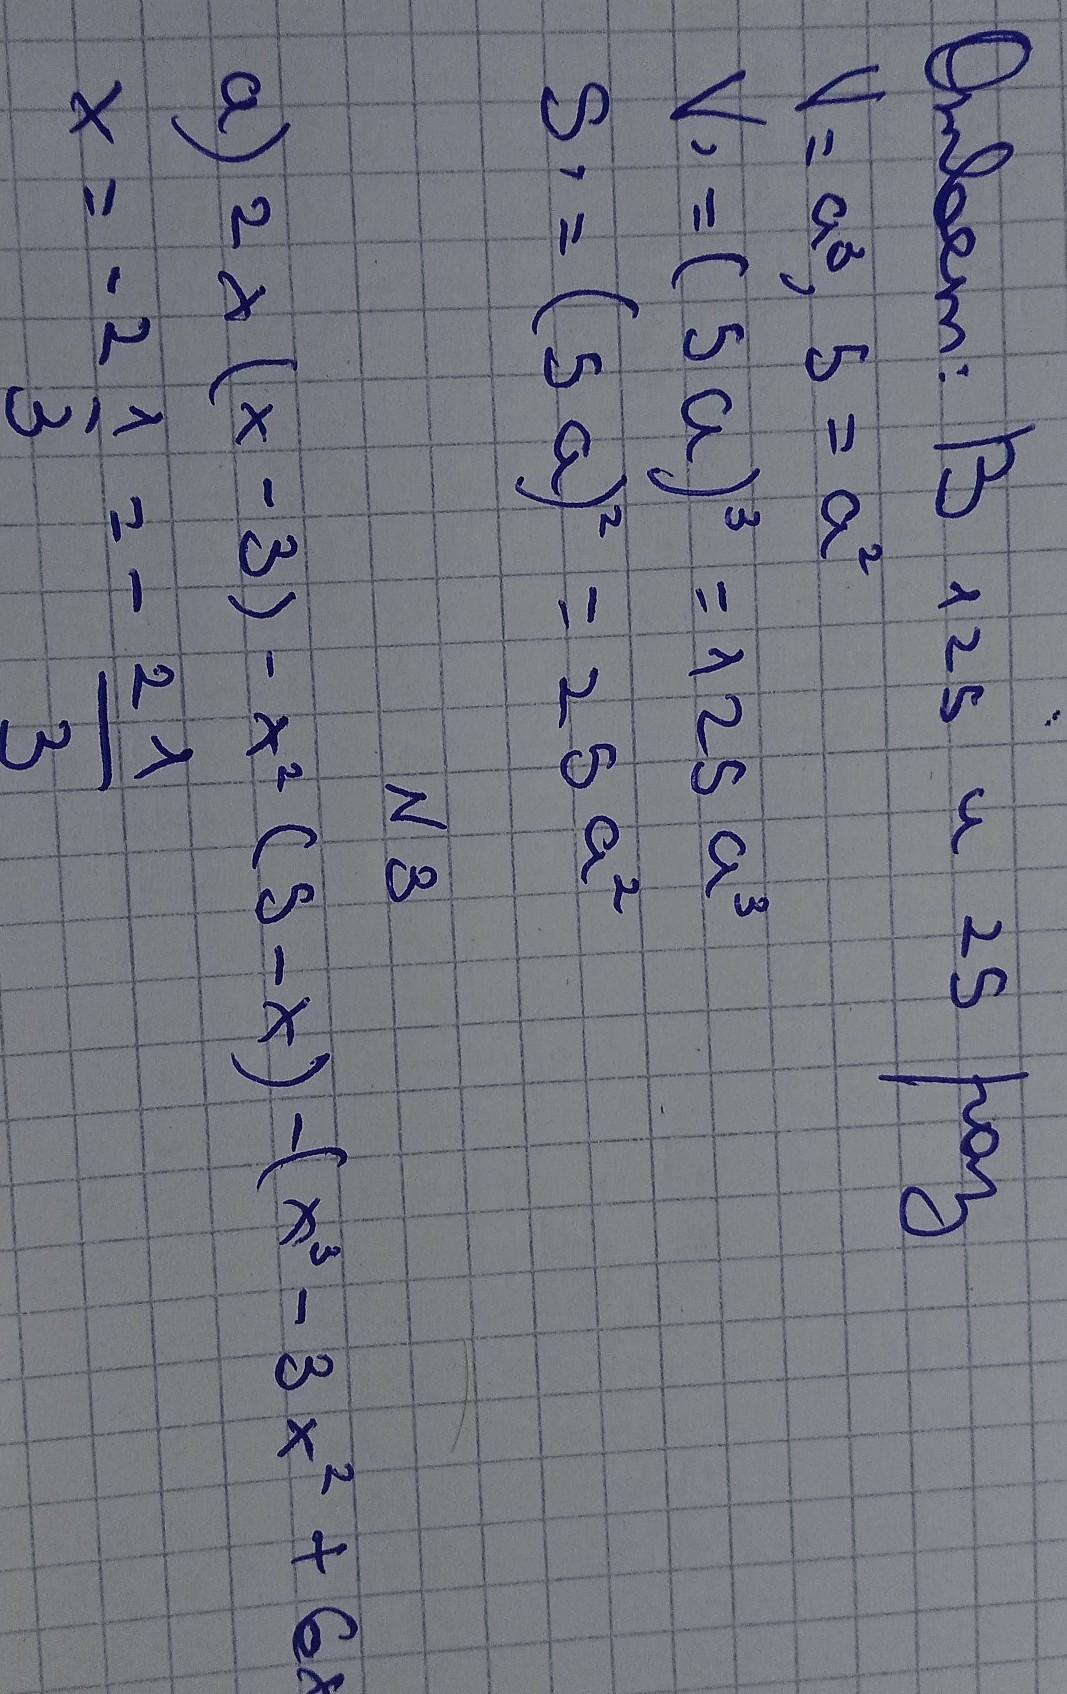 Ответ: В 125 и 25 раз
V = a³, S = a²
V, = (5a)³ = 125a³
S, = (5a)² = 25a²
N3
a) 2x(x-3) - x²(5-x) - (x³ - 3x² + 6x
x = -2,1 = - 21
3 3